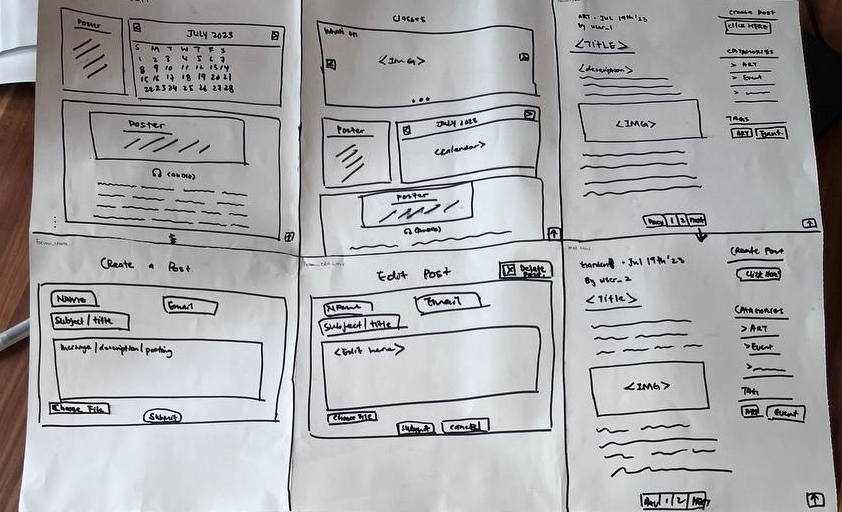 Poster
JULY 2023
S M T W T F S
1 2 3 4 5 6 7
8 9 10 11 12 13 14
15 16 17 18 19 20 21
22 23 24 25 26 27 28
Poster
(AUDIO)
Classes
What's on
<IMG>
Poster
JULY 2023
<calendar>
Poster
(AUDIO)
ART · Jul 19th '23
By user_1
<TITLE>
<description>
<IMG>
Prev 1 2 next
Create Post
CLICK HERE
CATAGORIES
> ART
> Event
>
TAGS
ART Event
Create a Post
NAME
Email
Subject/title
message/description/posting
Choose File
Submit
Edit Post
Delete Post
NAME
Email
Subject/title
<Edit here>
Choose File
Submit Cancel
· Jul 19th '23
By user_2
<Title>
<IMG>
Prev 1 2 Next
Create Post
Click Here
CATAGORIES
> ART
> Event
>
TAG
ART Event